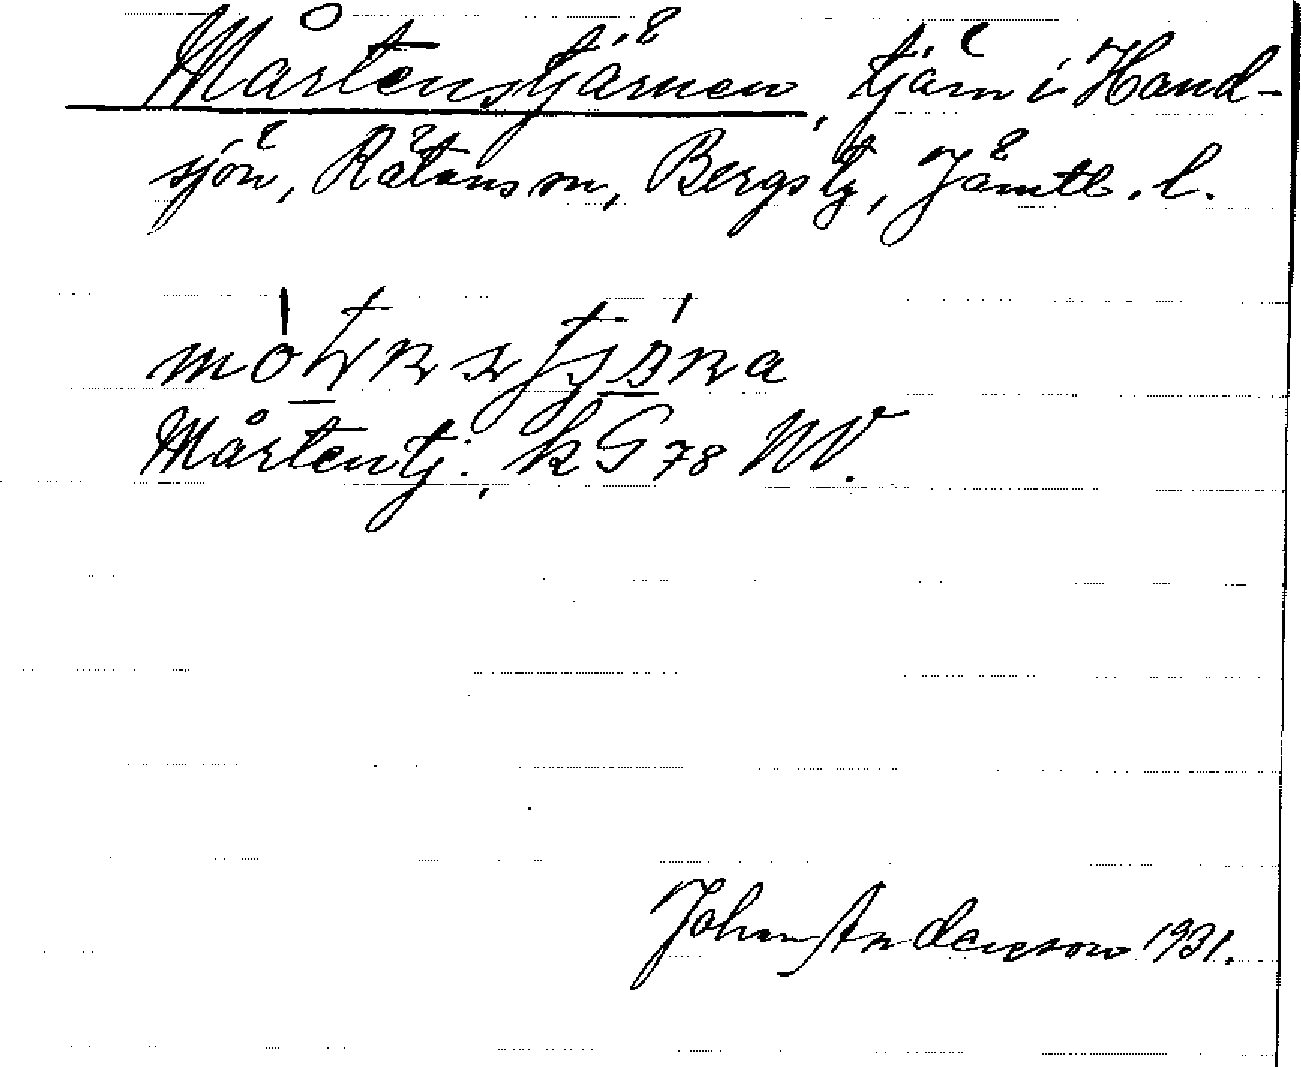 Mårtenstjärnen, tjärn i Hand-
sjön, Rätans sn, Bergs tg, Jämtl. l.
Mårtentj., kG 78 NV.
John Anderson 1931.